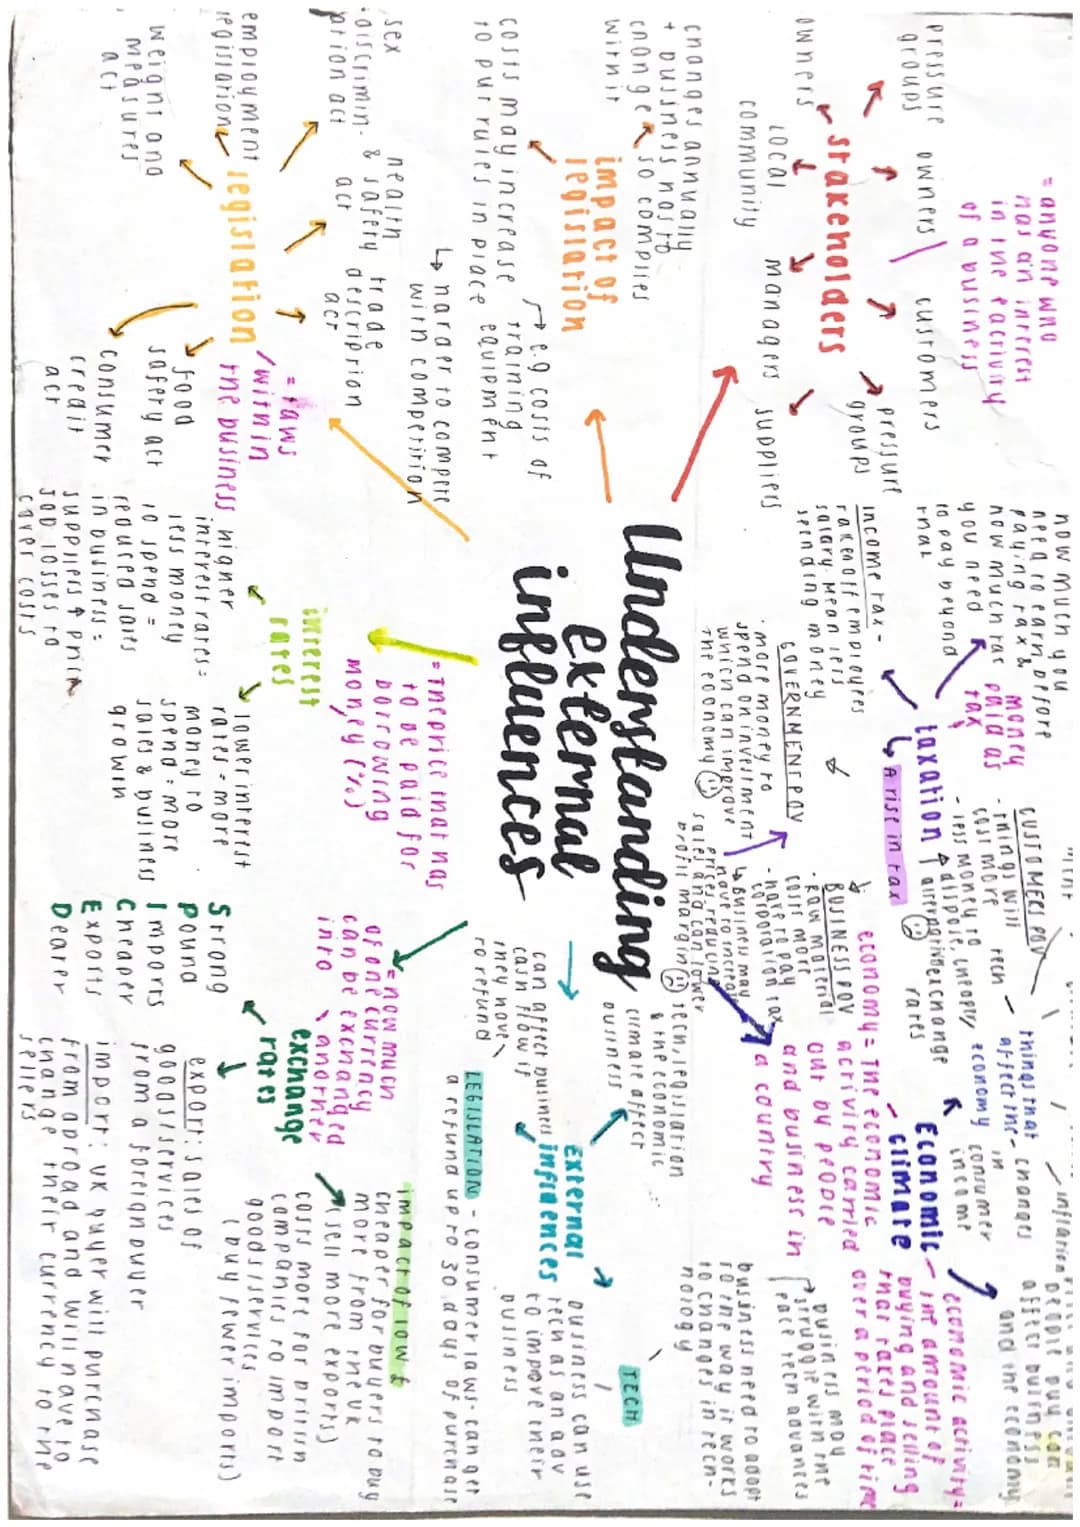 Understanding
External
influences
stakeholders
= anyone who
has an interest
in the activity
of a business
pressure
groups
owners
customers
pressure
groups
owners
local
community
managers
suppliers
impact of
legislation
changes annually
+ business has to
change so complies
with it
costs may increase
to put rules in place
→ e.g costs of
training
equipment
↳ harder to compete
with competition
legislation
= laws
within
the business
employment
legislation
sex
discrimin-
ation act
health
& safety
act
trade
description
act
weight and
measures
act
food
safety act
consumer
credit
act
interest
rates
= the price that has
to be paid for
borrowing
money (%)
higher
interest rates =
less money
to spend =
reduced sales
in business =
suppliers ↑ price
job losses to
cover costs
lower interest
rates = more
money to
spend = more
sales & buiness
growth
exchange
rates
= how much
of one currency
can be exchanged
into another
Strong
Pound
Imports
Cheaper
Exports
Dearer
export: sales of
goods/services
from a foreign buyer
import: UK buyer will purchase
from abroad and will have to
change their currency to the
sellers
impact of low £
cheaper for buyers to buy
more from the UK
(sell more exports)
costs more for british
companies to import
goods/services
(buy fewer imports)
External
infiences
climate affect
buiness
tech, legislation
& the economic
can affect buines
cash flow if
they have
to refund
LEGISLATION - consumer laws - can get
a refund up to 30 days of purchase
TECH
business can use
tech as an adv
to impove their
business
business need to adapt
to the way it works
to changes in tech-
nology
busines may
struggle with the
pace tech advances
taxation
money
paid as
tax
how much you
need to earn before
paying tax &
how much tax
you need
to pay beyond
that
↳ A rise in tax
income tax -
taken off employees
salary. Mean less
spending money
GOVERNMENT POV
· more money to
spend on investment
which can improve
the economy
CUSTOMERS POV
- things will
cost more
- less money to
BUSINESS POV
· raw material
costs more
· have to pay
corporation tax
↳ Business may
have to increase
prices, reducing
sales and can lower
profit margin
Economic
climate
economy = the economic
activity carried
out by people
and business in
a country
economic activity =
the amount of
buying and selling
that takes place
over a period of time
things that
affect the
economy
tech
exchange
rates
changes
in
consumer
income
inflation
people buy can
affect buiness
and the economy